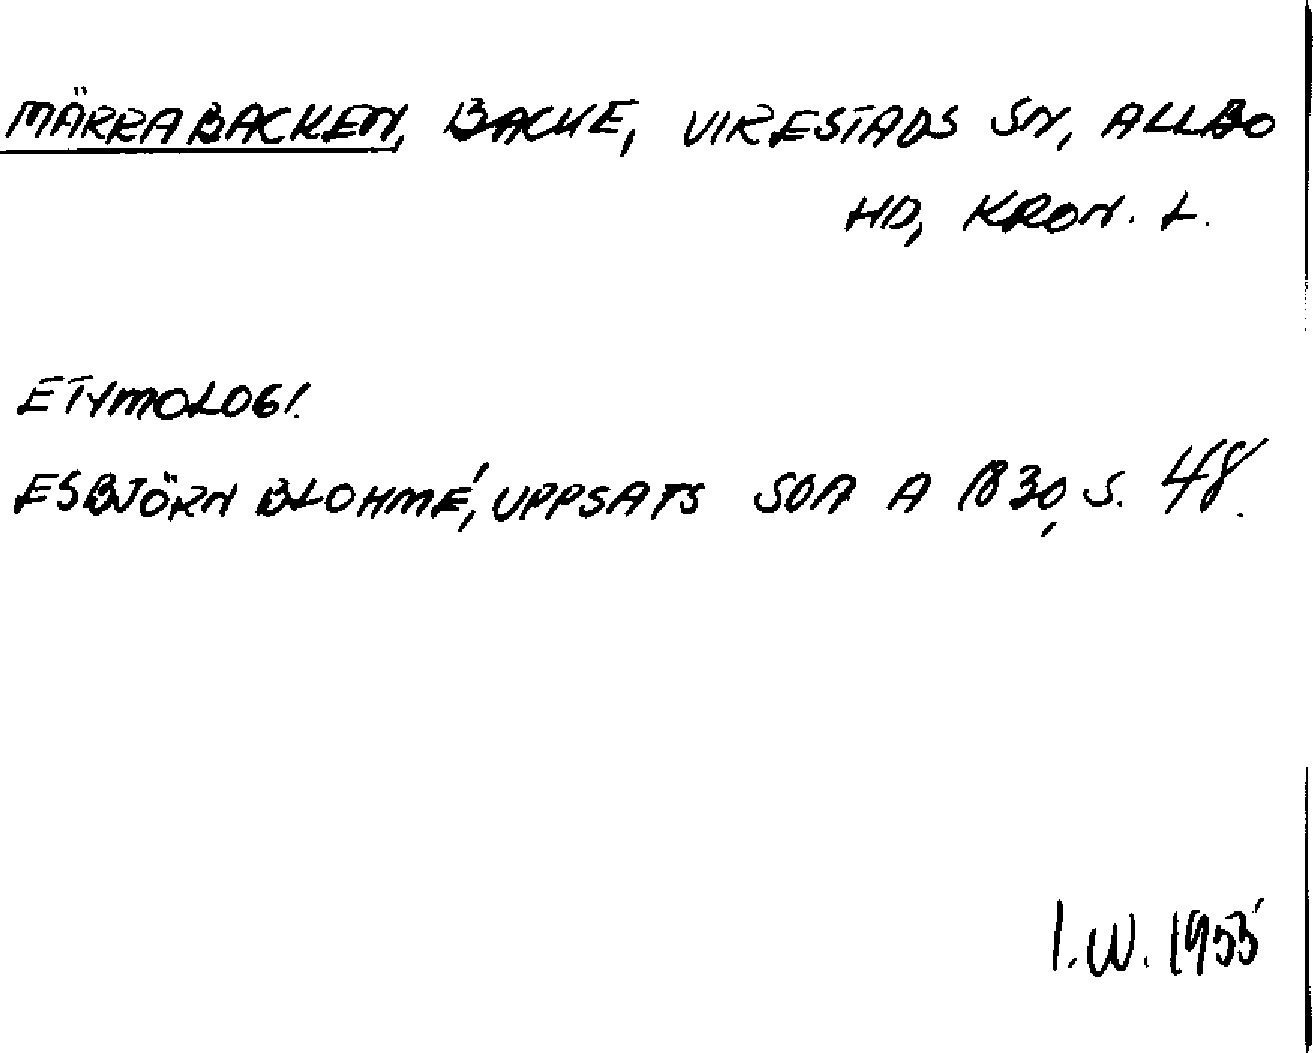 MÄRRABACKEN, BACKE, VIRESTADS SN, ALLBO
HD, KRON. L.
ETYMOLOGI.
ESBJÖRN BLOHMÉ, UPPSATS SOA A 1830, S. 48.
I.W. 1955